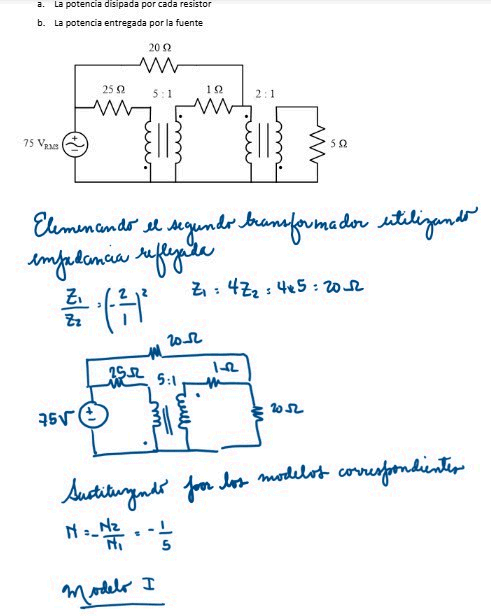 a. La potencia disipada por cada resistor
b. La potencia entregada por la fuente
20 Ω
25 Ω
5 : 1
1 Ω
2 : 1
75 V RMS
5 Ω
Elemenando el segundo transformador utilizando
impedancia reflejada
Z1/Z2 = (-2/1)²   Z1 = 4Z2 = 4x5 = 20 Ω
20 Ω
25 Ω
5:1
1 Ω
75V
20 Ω
Sustituyendo por los modelos correspondientes
N = -N2/N1 = -1/5
Modelo I